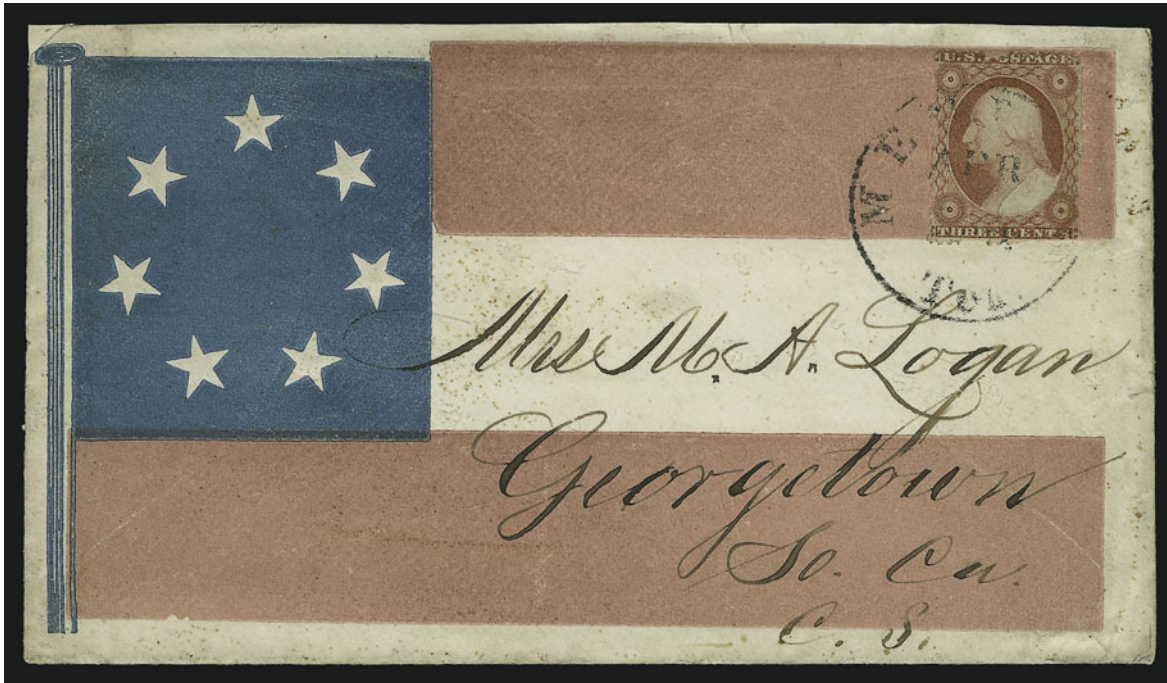 U.S. POSTAGE
APR
THREE CENTS
Mrs M. A. Logan
Georgetown
So. Ca.
C. S.